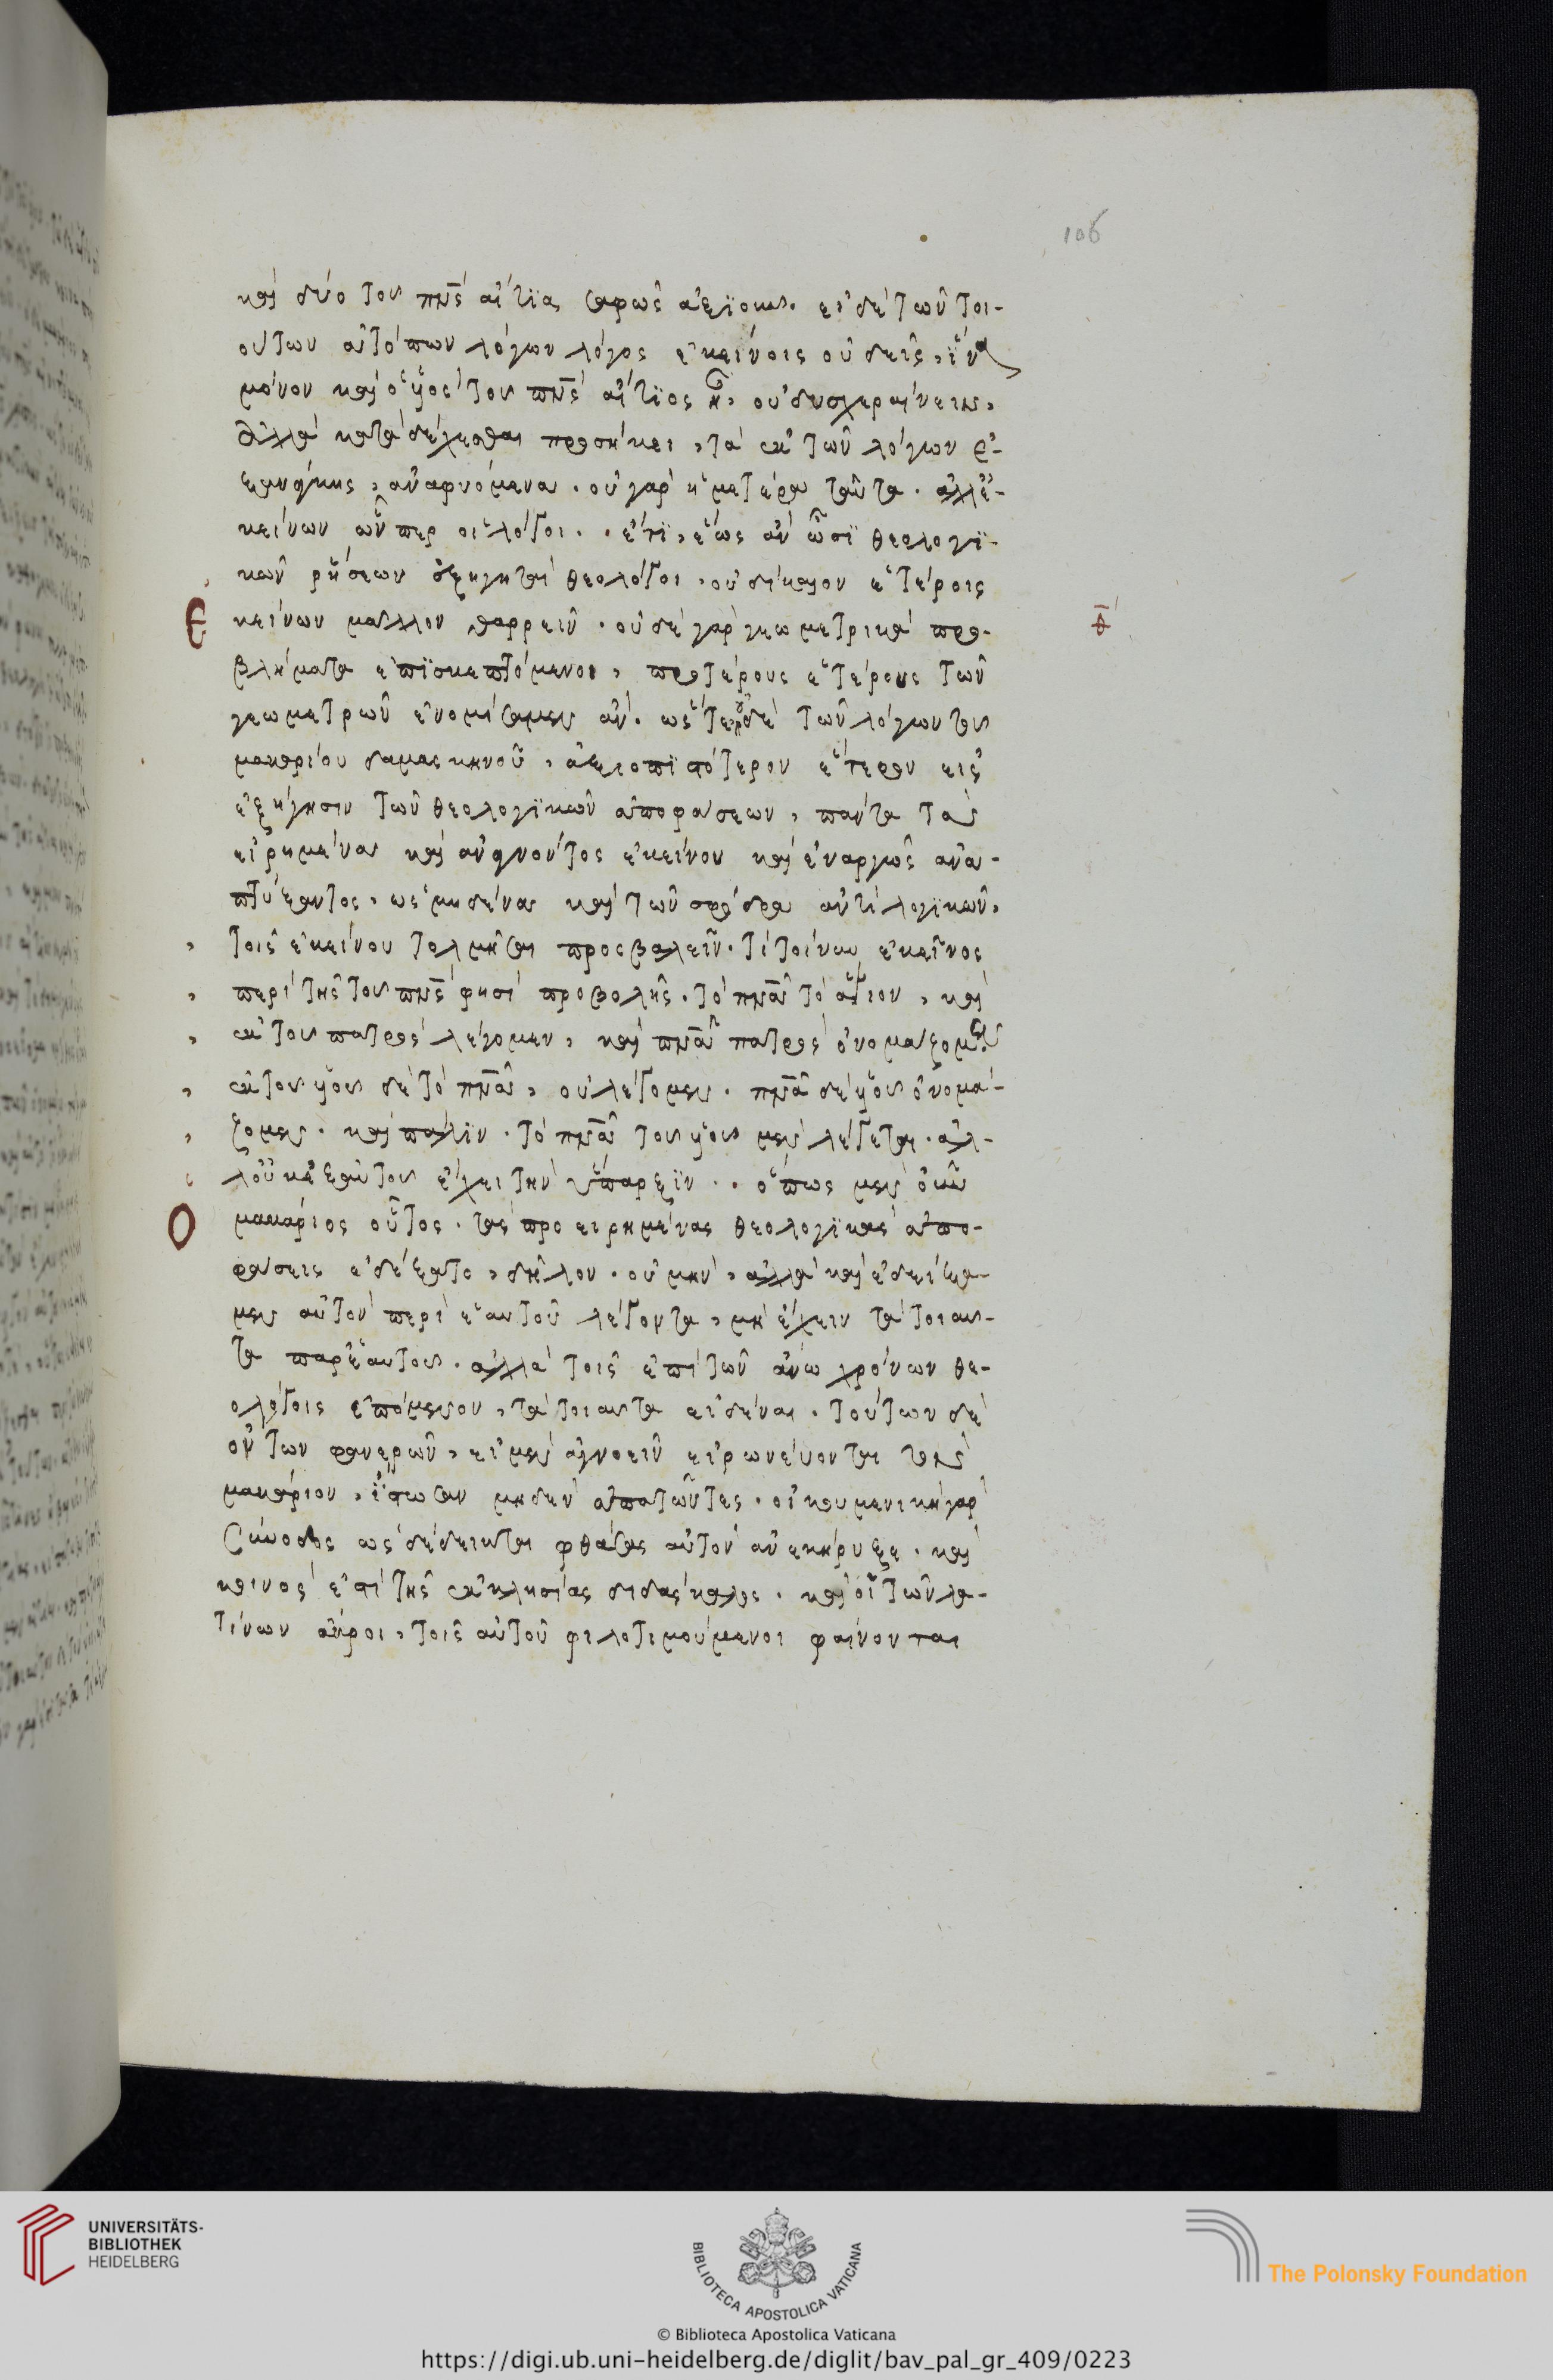 106
καὶ δύο τοῦ πν̅ς αἴτϊα σαφῶς ἀξιοῦν. εἰ δὲ τῶν τοι-
ούτων ἀτόπων λόγων λόγος ἐκείνοις οὐδεὶς, ἵνα
μόνον καὶ ὁ υἱὸς τοῦ πν̅ς αἴτϊος ᾖ, οὐ δυσχεραίνειν,
ἀλλὰ καταδέχεσθαι προσήκει, τὰ ἐκ τῶν λόγων ἐ-
ξανάγκης, ἀναφυόμενα. οὐ γὰρ ἡμέτερα ταῦτα. ἀλλ' ἐ-
κείνων ὧνπερ οἱ λόγοι.. ἔτϊ, ἕως ἂν ὦσϊ θεολογϊ-
κῶν ῥήσεων ἐξηγηταὶ θεολόγοι, οὐ δίκαιον ἑτέροις
Ἐκείνων μᾶλλον θαρρεῖν. οὐδὲ γὰρ γεωμετρικὰ προ-
βλήματα ἐπϊσκεπτόμενοι, προτέρους ἑτέρους τῶν
γεωμετρῶν ἐνομίσαμεν ἄν. ὥστε οὐδὲ τῶν λόγων τοῦ
μακαρίου δαμασκηνοῦ, ἀξιοπϊστότερον ἕτερον εἰς
ἐξήγησιν τῶν θεολογϊκῶν ἀποφάσεων, πάντα τὰς
εἰρημένας καὶ ἀναγνόντος ἐκείνου καὶ ἐναργῶς ἀνα-
πτύξαντος. ὡς μηδένας καὶ τῶν σφόδρα ἀντιλογϊκῶν,
τοῖς ἐκείνου τολμῆσαι προσβαλεῖν. τί τοίνυν ἐκεῖνος
περὶ τῆς τοῦ πν̅ς φησὶ προβολῆς. τὸ πν̅α τὸ ἅγιον, καὶ
ἐκ τοῦ πατρὸς λέγομεν, καὶ πν̅α πατρὸς ὀνομάζομεν
ἐκ τοῦ υἱοῦ δὲ τὸ πν̅α, οὐ λέγομεν. πν̅α δὲ υἱοῦ ὀνομά-
ζομεν. καὶ πάλϊν. τὸ πν̅α τοῦ υἱοῦ μὲν λέγεται. ἀλ-
λ' οὐκ ἐξ αὐτοῦ ἔχει τὴν ὕπαρξϊν.. ὅπως μὲν οὖν
Ὁ μακάριος οὗτος. τὰς προειρημένας θεολογϊκὰς ἀπο-
φάσεις ἐδέξατο, δῆλον. οὐ μὴν, ἀλλὰ καὶ ἐδείξα-
μεν αὐτὸν περὶ ἑαυτοῦ λέγοντα, μὴ ἔχειν τὰ τοιαῦ-
τα παρ' ἑαυτοῦ. ἀλλὰ τοῖς ἐπὶ τῶν ἄνω χρόνων θε-
ολόγοις ἑπόμενον, τὰ τοιαῦτα εἰδέναι. τούτων δὲ
ὄντων φανερῶν, εἰ μὲν ἀγνοεῖν εἰρωνεύονται τὸν
μακάριον, ἴστωσαν μηδὲν ἀπατῶντες. οἰκουμενικὴ γὰρ
σύνοδος ὡς δέδεικται φθάσας αὐτὸν ἀνεκήρυξε. καὶ
κοινὸς ἐστὶ τῆς ἐκκλησίας διδάσκαλος. καὶ οἱ τῶν λα-
τίνων ἄκροι, τοῖς αὐτοῦ φιλοτιμούμενοι φαίνονται
UNIVERSITÄTS-
BIBLIOTHEK
HEIDELBERG
BIBLIOTECA APOSTOLICA VATICANA
The Polonsky Foundation
© Biblioteca Apostolica Vaticana
https://digi.ub.uni-heidelberg.de/diglit/bav_pal_gr_409/0223